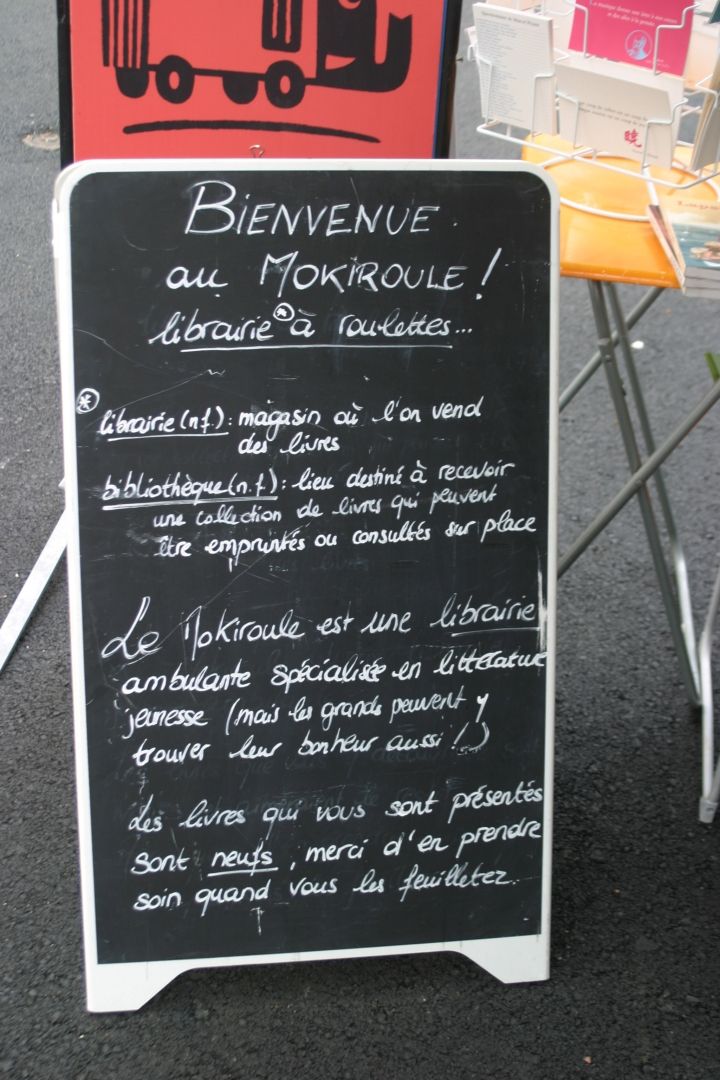 BIENVENUE
au MOKIROULE !
librairie * à roulettes...
* librairie (n.f.) : magasin où l'on vend
des livres
bibliothèque (n.f.) : lieu destiné à recevoir
une collection de livres qui peuvent
être empruntés ou consultés sur place
Le Mokiroule est une librairie
ambulante spécialisée en littérature
jeunesse (mais les grands peuvent y
trouver leur bonheur aussi !)
Les livres qui vous sont présentés
sont neufs, merci d'en prendre
soin quand vous les feuilletez.